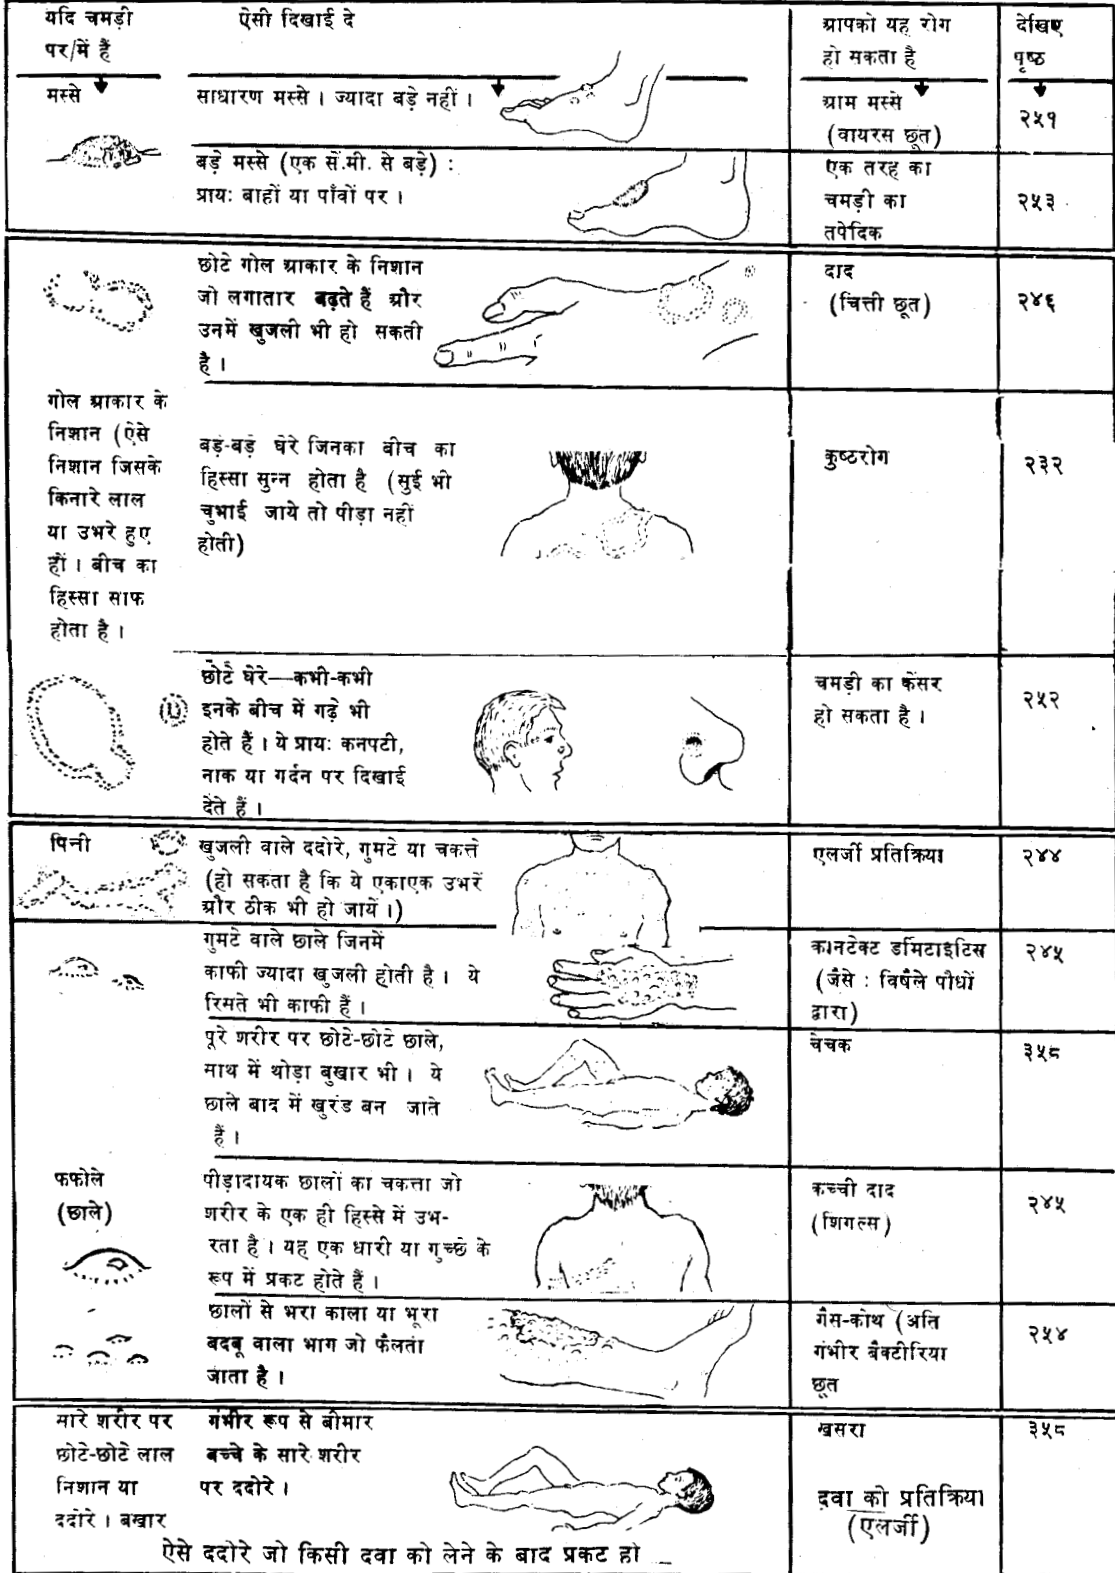 यदि चमड़ी
पर/में हैं
ऐसी दिखाई दे
आपको यह रोग
हो सकता है
देखिए
पृष्ठ
मस्से
साधारण मस्से । ज्यादा बड़े नहीं ।
आम मस्से
(वायरस छूत)
२५१
बड़े मस्से (एक सें.मी. से बड़े) :
प्रायः बाहों या पाँवों पर ।
एक तरह का
चमड़ी का
तपेदिक
२५३
छोटे गोल आकार के निशान
जो लगातार बढ़ते हैं और
उनमें खुजली भी हो सकती
है ।
दाद
(चित्ती छूत)
२४६
गोल आकार के
निशान (ऐसे
निशान जिसके
किनारे लाल
या उभरे हुए
हों । बीच का
हिस्सा साफ
होता है ।
बड़े-बड़े घेरे जिनका बीच का
हिस्सा सुन्न होता है (सुई भी
चुभाई जाये तो पीड़ा नहीं
होती)
कुष्ठरोग
२३२
छोटे घेरे—कभी-कभी
इनके बीच में गढ़े भी
होते हैं । ये प्रायः कनपटी,
नाक या गर्दन पर दिखाई
देते हैं ।
चमड़ी का कैंसर
हो सकता है ।
२५२
पिनी
खुजली वाले ददोरे, गुमटे या चकत्ते
(हो सकता है कि ये एकाएक उभरें
और ठीक भी हो जायें ।)
एलर्जी प्रतिक्रिया
२४४
गुमटे वाले छाले जिनमें
काफी ज्यादा खुजली होती है । ये
रिसते भी काफी हैं ।
कानटेक्ट डर्मिटाइटिस
(जैसे : विषैले पौधों
द्वारा)
२४५
पूरे शरीर पर छोटे-छोटे छाले,
साथ में थोड़ा बुखार भी । ये
छाले बाद में खुरंड बन जाते
हैं ।
चेचक
३५८
फफोले
(छाले)
पीड़ादायक छालों का चकत्ता जो
शरीर के एक ही हिस्से में उभ-
रता है । यह एक धारी या गुच्छे के
रूप में प्रकट होते हैं ।
कच्ची दाद
(शिंगल्स)
२४५
छालों से भरा काला या भूरा
बदबू वाला भाग जो फैलता
जाता है ।
गैस-कोथ (अति
गंभीर बैक्टीरिया
छूत
२५४
सारे शरीर पर
छोटे-छोटे लाल
निशान या
ददोरे । बुखार
गंभीर रूप से बीमार
बच्चे के सारे शरीर
पर ददोरे ।
खसरा
३५८
ऐसे ददोरे जो किसी दवा को लेने के बाद प्रकट हों
दवा की प्रतिक्रिया
(एलर्जी)